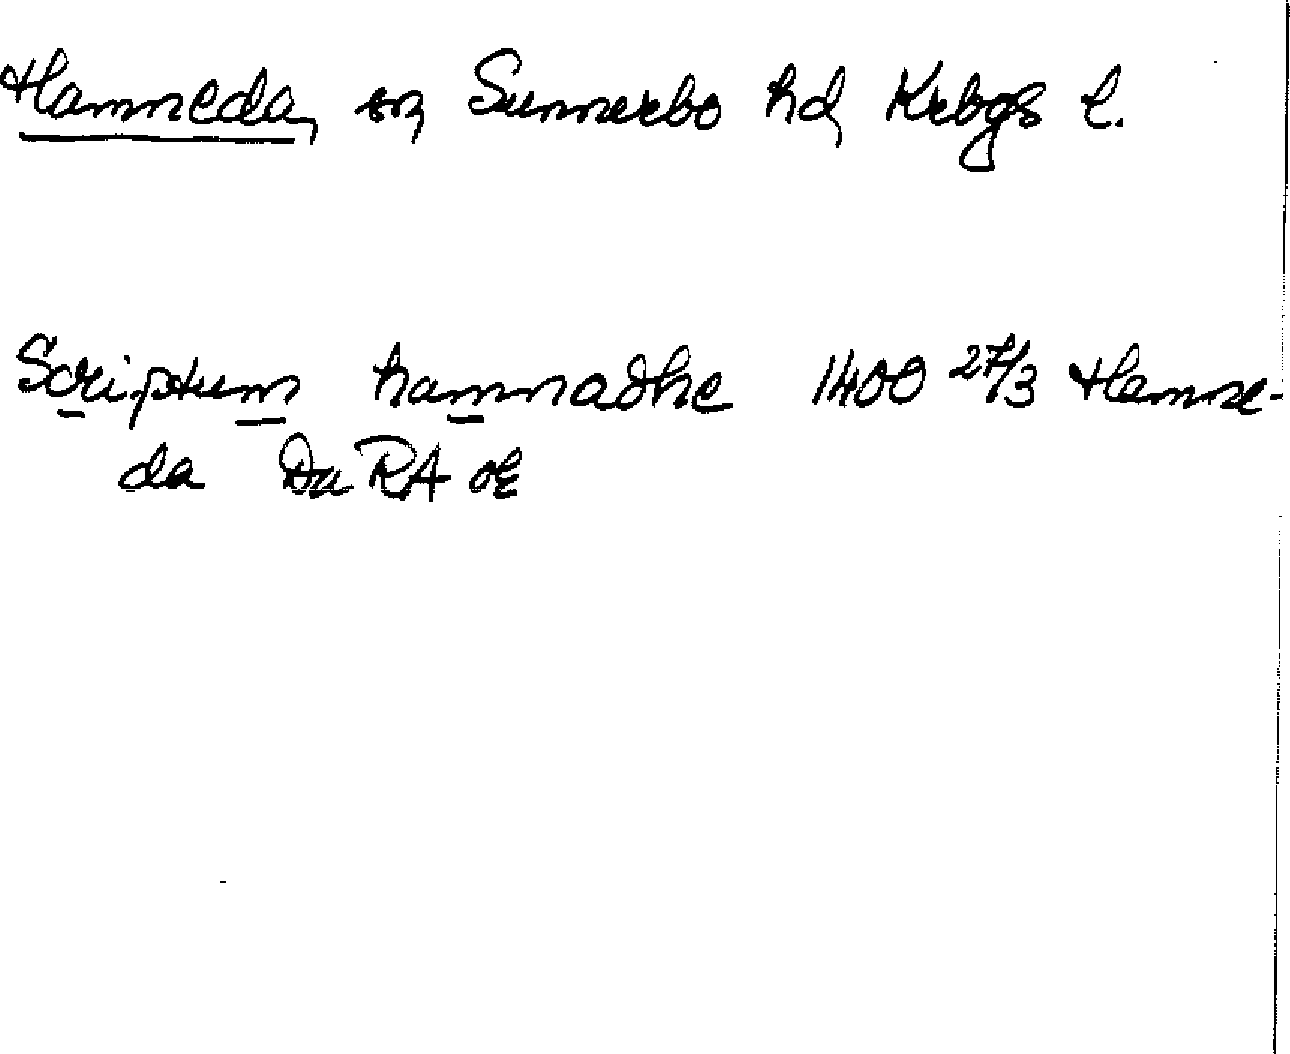 Hamneda, sn, Sunnerbo hd, Krbgs l.
Scriptum hamnadhe 1400 27/3 Hamne-
da Da RA OE